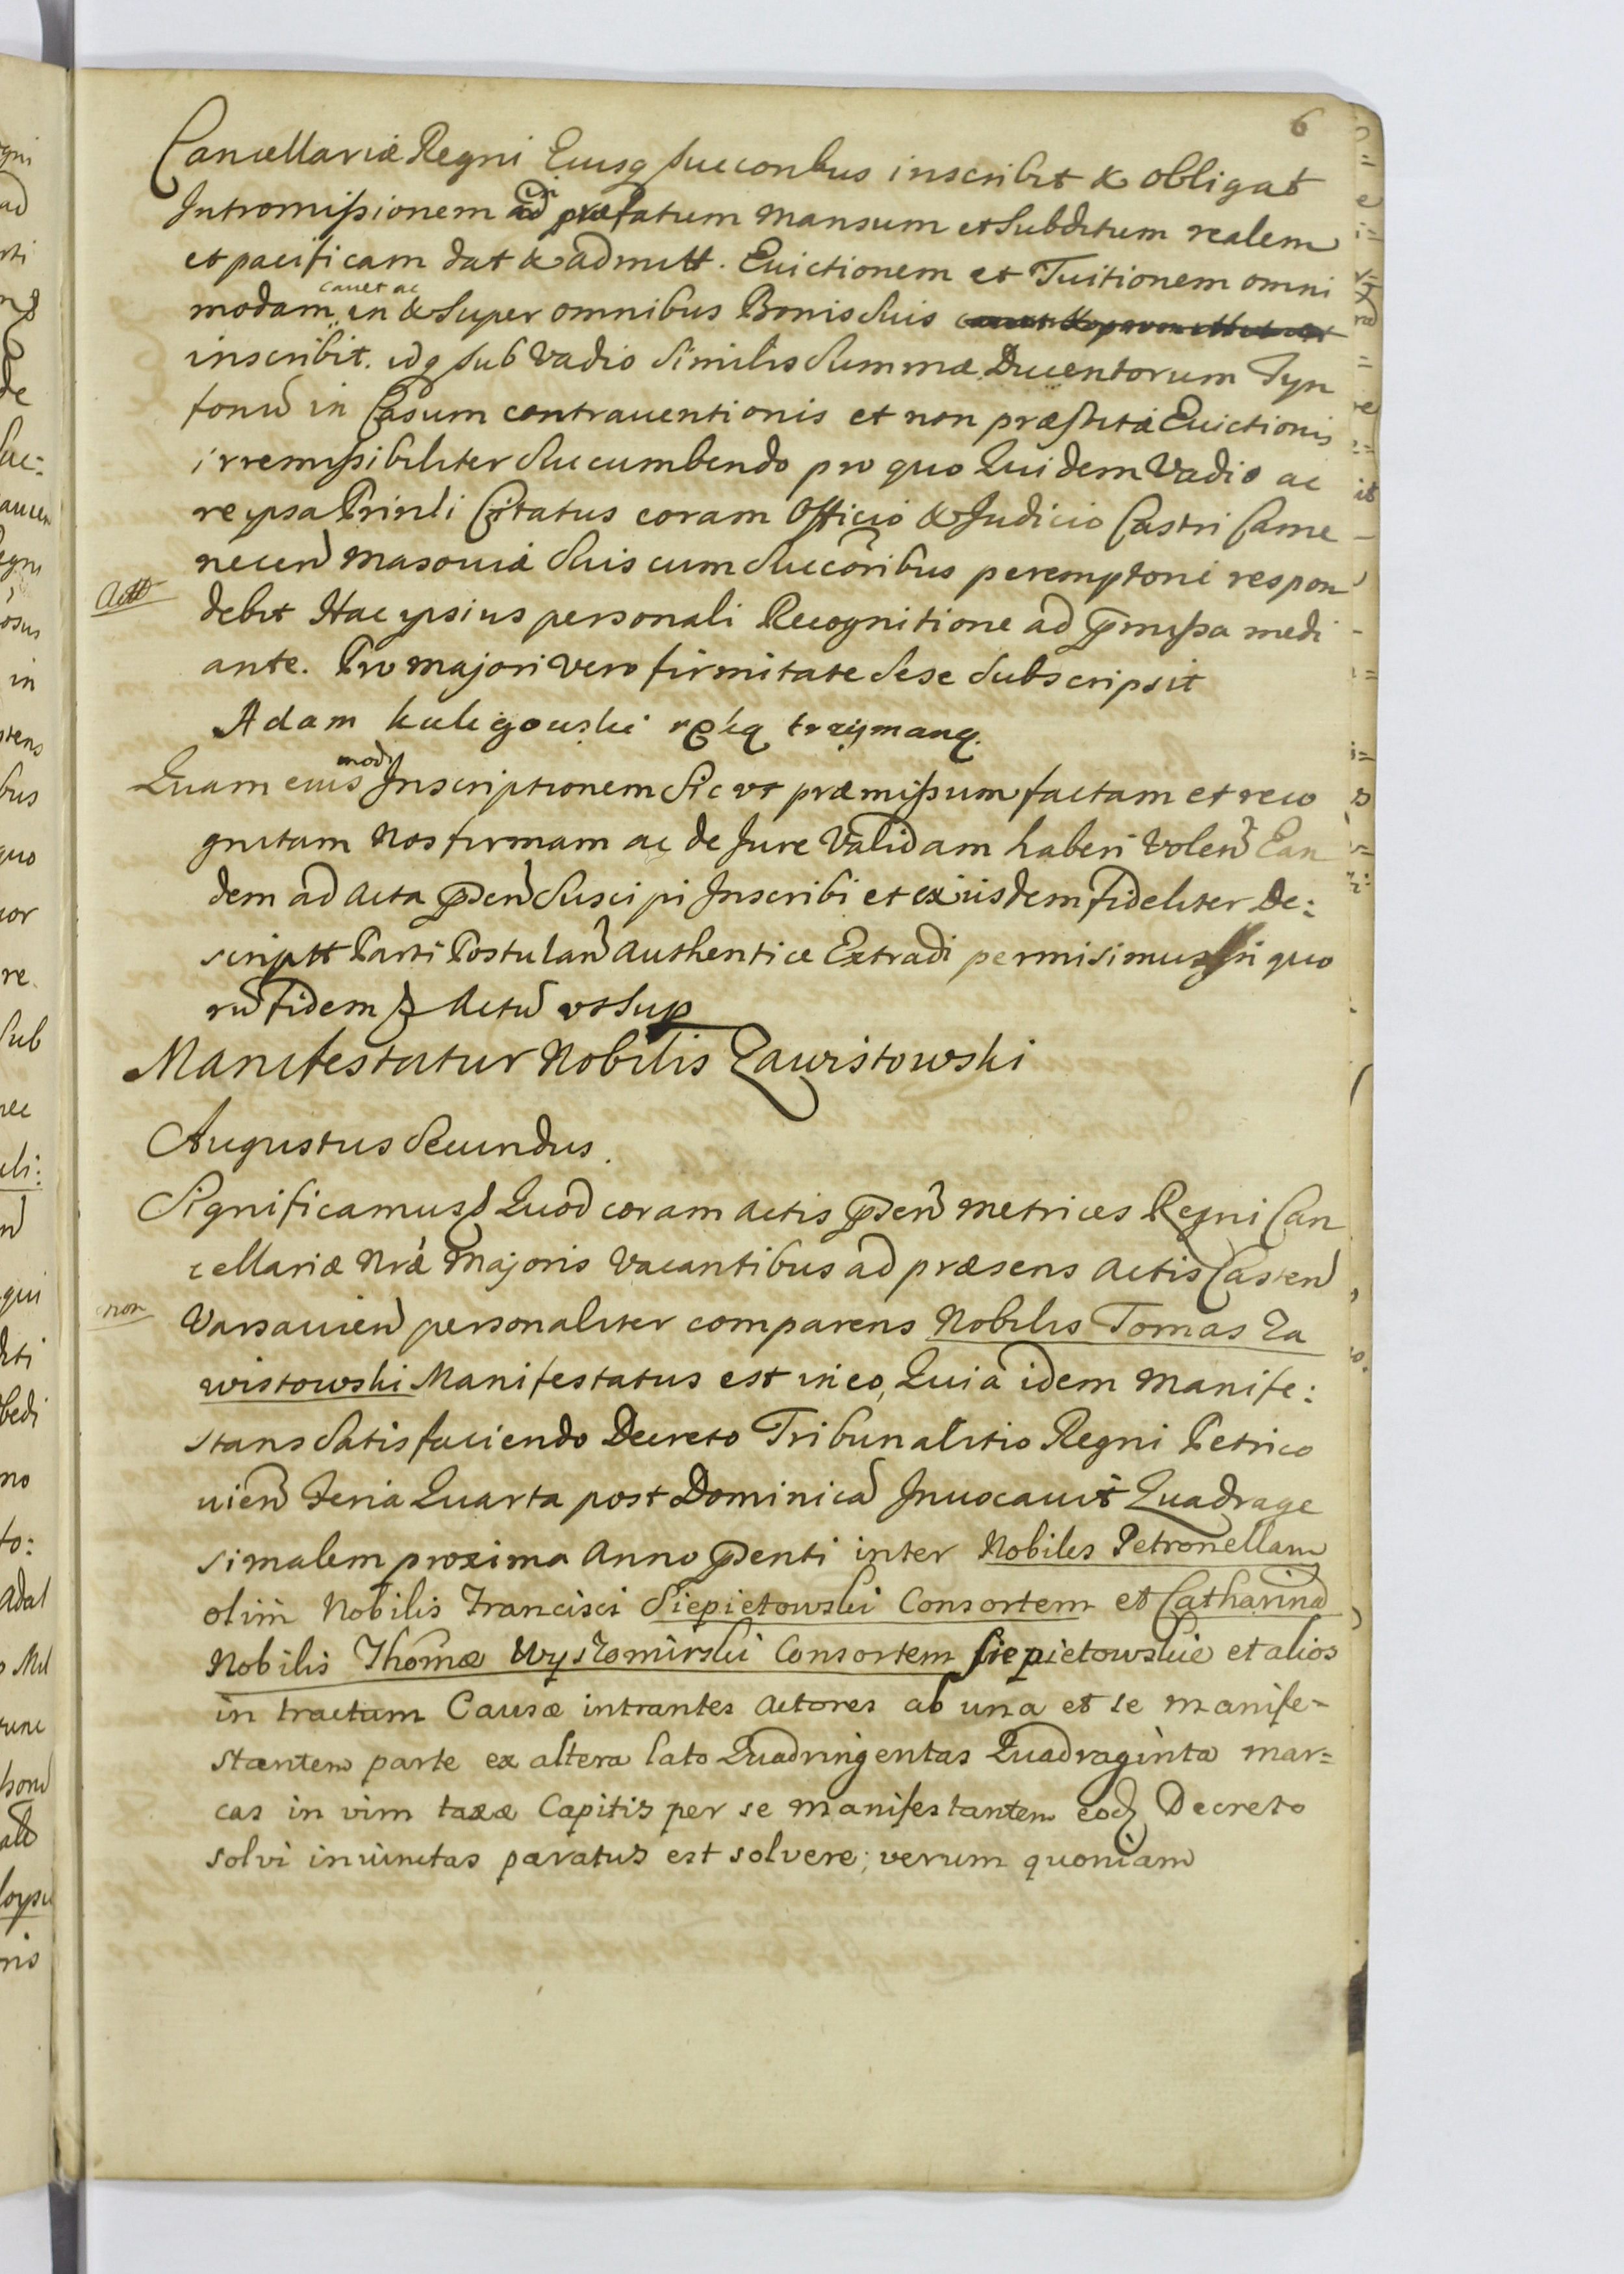 6
Cancellariæ Regni Eiusq succoribus inscribit & obligat
Intromissionem ad præfatum Mansum et Subditum realem
et pacificam dat & admitt. Euictionem et Tuitionem omni
cauet ac
modam in & Super omnibus Bonis Suis
inscribit. idq sub Vadio Similis Summæ Ducentorum Tyn
fonū in Casum contrauentionis et non præstitæ Euictionis
irremissibiliter Succumbendo pro quo Quidem Vadio ac
re ipsa Prinli Citatus coram Officio & Judicio Castri Came
necen̄ Masouiæ Suis cum Succōribus peremptorie respon
debit Hac ipsius personali Recognitione ad p̄missa medi
ante. Pro majori vero firmitate Sese Subscripsit
Adam Kuligouski ręką trzymaną.
mod̄i
Quam eius Inscriptionem Sic ut præmissum factam et reco
gnitam Nos firmam ac de Jure Validam haberi Volen̄ Ean
dem ad Acta p̄sen̄ Suscipi Inscribi et ex iisdem fideliter De:
scriptt Parti Postulan̄ Authentice Extradi permisimus In quo
rū fidem Actū ut Sup
Manifestatur Nobilis Zawistowski
Augustus Secundus.
Significamus Quod coram Actis p̄sen̄ Metrices Regni Can
cellariæ Nræ Majoris Vacantibus ad præsens Actis Castren̄
non
Varsauien̄ personaliter comparens Nobilis Tomas Za
wistowski Manifestatus est in eo, Quia idem Manife:
stans Satisfaciendo Decreto Tribunalitio Regni Petrico
uien̄ Feria Quarta post Dominicā Inuocauit Quadrage
simalem proxima Anno p̄senti inter Nobiles Petronellam
olim Nobilis Francisci Siepietowski Consortem et Catharinā
Nobilis Thomæ Wyszomirski Consortem Siepietowskie et alios
in tractum Causæ intrantes Actores ab una et se manife-
stantem parte ex altera lato Quadringentas Quadraginta mar=
cas in vim taxæ Capitis per se manifestantem eod Decreto
solvi iniunctas paratus est solvere; verum quoniam